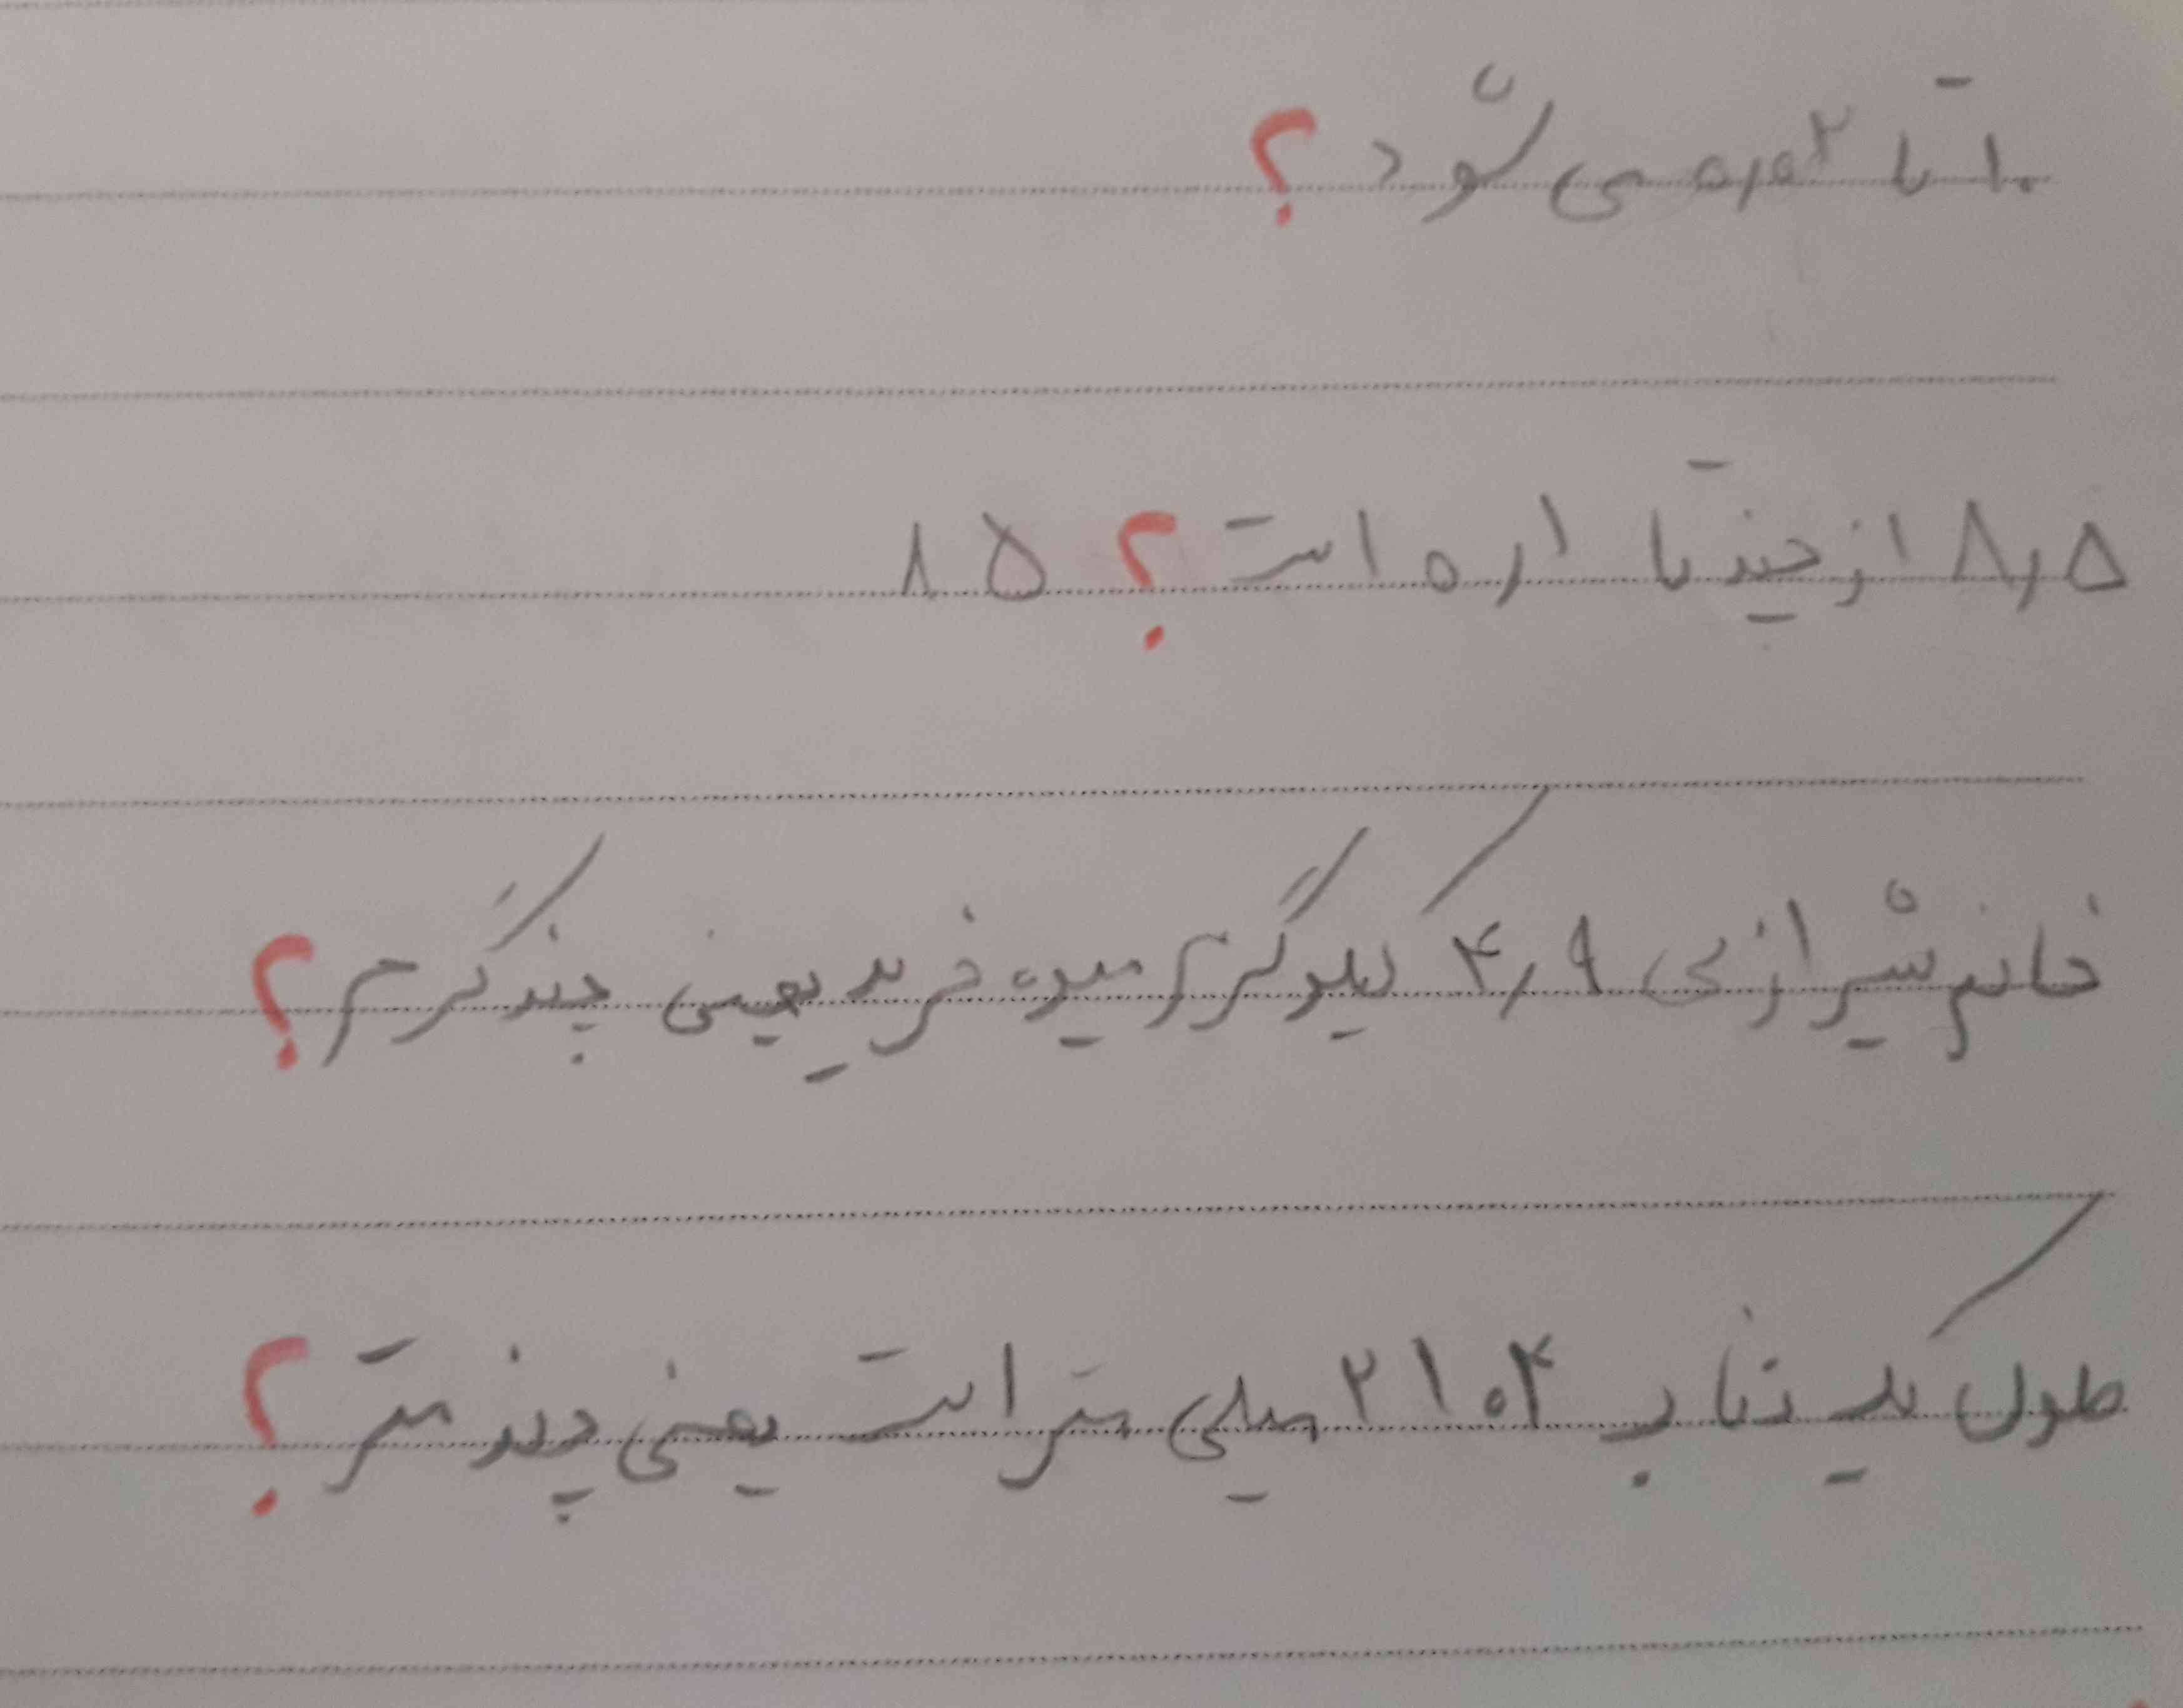 ۱۰ تا ۰٫۰۲ می شود ؟
۸٫۵ از چند تا ۰٫۱ است ؟ ۸۵
خانم شیرازی ۴٫۹ کیلوگرم میوه خرید یعنی چند گرم ؟
طول یک طناب ۲۱۰۴ میلی متر است یعنی چند متر ؟